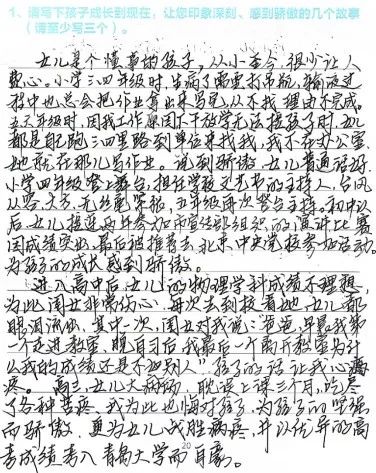 1、请写下孩子成长到现在，让您印象深刻、感到骄傲的几个故事
（请至少写三个）。
女儿是个懂事的孩子，从小至今，很少让人
费心。小学三四年级时，生病了需要打吊瓶，输液过
程中也总会把作业拿出来写完，从不找理由不完成。
五六年级时，因我工作原因不干放学无法接孩子时，女儿
都是自己跑三四里路到单位来找我，我不在办公室，
她就在那儿写作业。说到骄傲，女儿普通话好，
小学四年级登上舞台，担任学校文艺节的主持人，台风
从容、大方，无丝毫紧张，五年级再次登台主持。初中以
后，女儿接连两年参加市宣传部组织的演讲比赛
因成绩突出，最后被推荐去北京中央党校参加活动，
为孩子的成长感到骄傲。
进入高中后，女儿的物理学科成绩不理想，
为此闺女非常伤心，每次去到校看她，女儿都
眼泪流出，其中一次，闺女对我说：爸爸，早晨我第
一个走进教室，晚自习后，我最后一个离开教室，为什
么我的成绩还是不如别人”孩子的话让我心痛
疼。高三，女儿大病一场，耽误上课三个月，吃尽
了各种苦疼，我为此也悔对孩子，为孩子的坚强
而骄傲，更为女儿战胜病疼，并以优异的高
考成绩考入青岛大学而自豪。
20